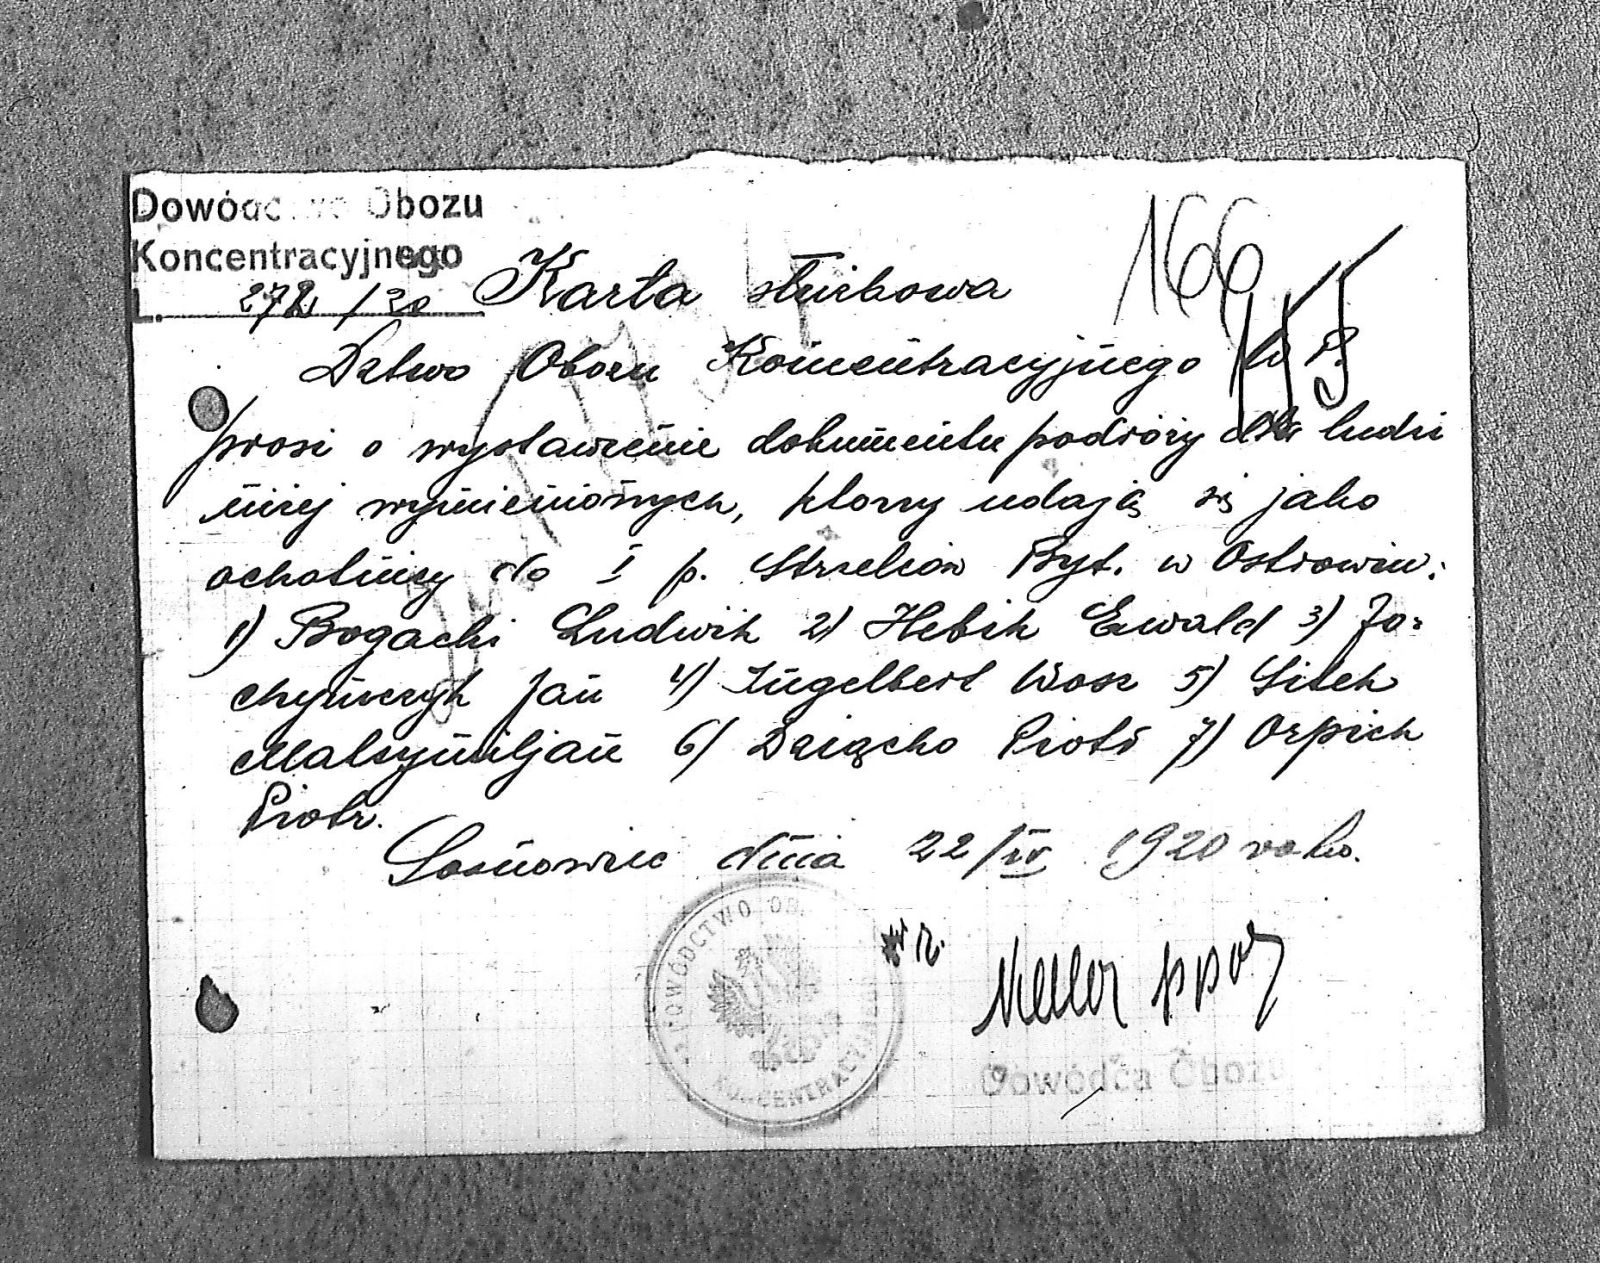 Dowództwo Obozu
Koncentracyjnego
L. 272/20
Karta służbowa
166
Dztwo Obozu Koncentracyjnego w P.
prosi o wystawienie dokumentu podróży dla ludzi
niżej wymienionych, którzy udają się jako
ochotnicy do I p. Strzelców Byt. w Ostrowiu:
1) Bogacki Ludwik 2) Hebik Ewald 3) Jo-
chymczyk Jan 4) Engelbert Wosz 5) Sitek
Maksymiljan 6) Dziącko Piotr 7) Orpich
Piotr.
Sosnowiec dnia 22/IV 1920 roku.
DOWÓDCTWO OB. KONCENTRACYJNEGO
w z.
ppor
Dowódca Obozu